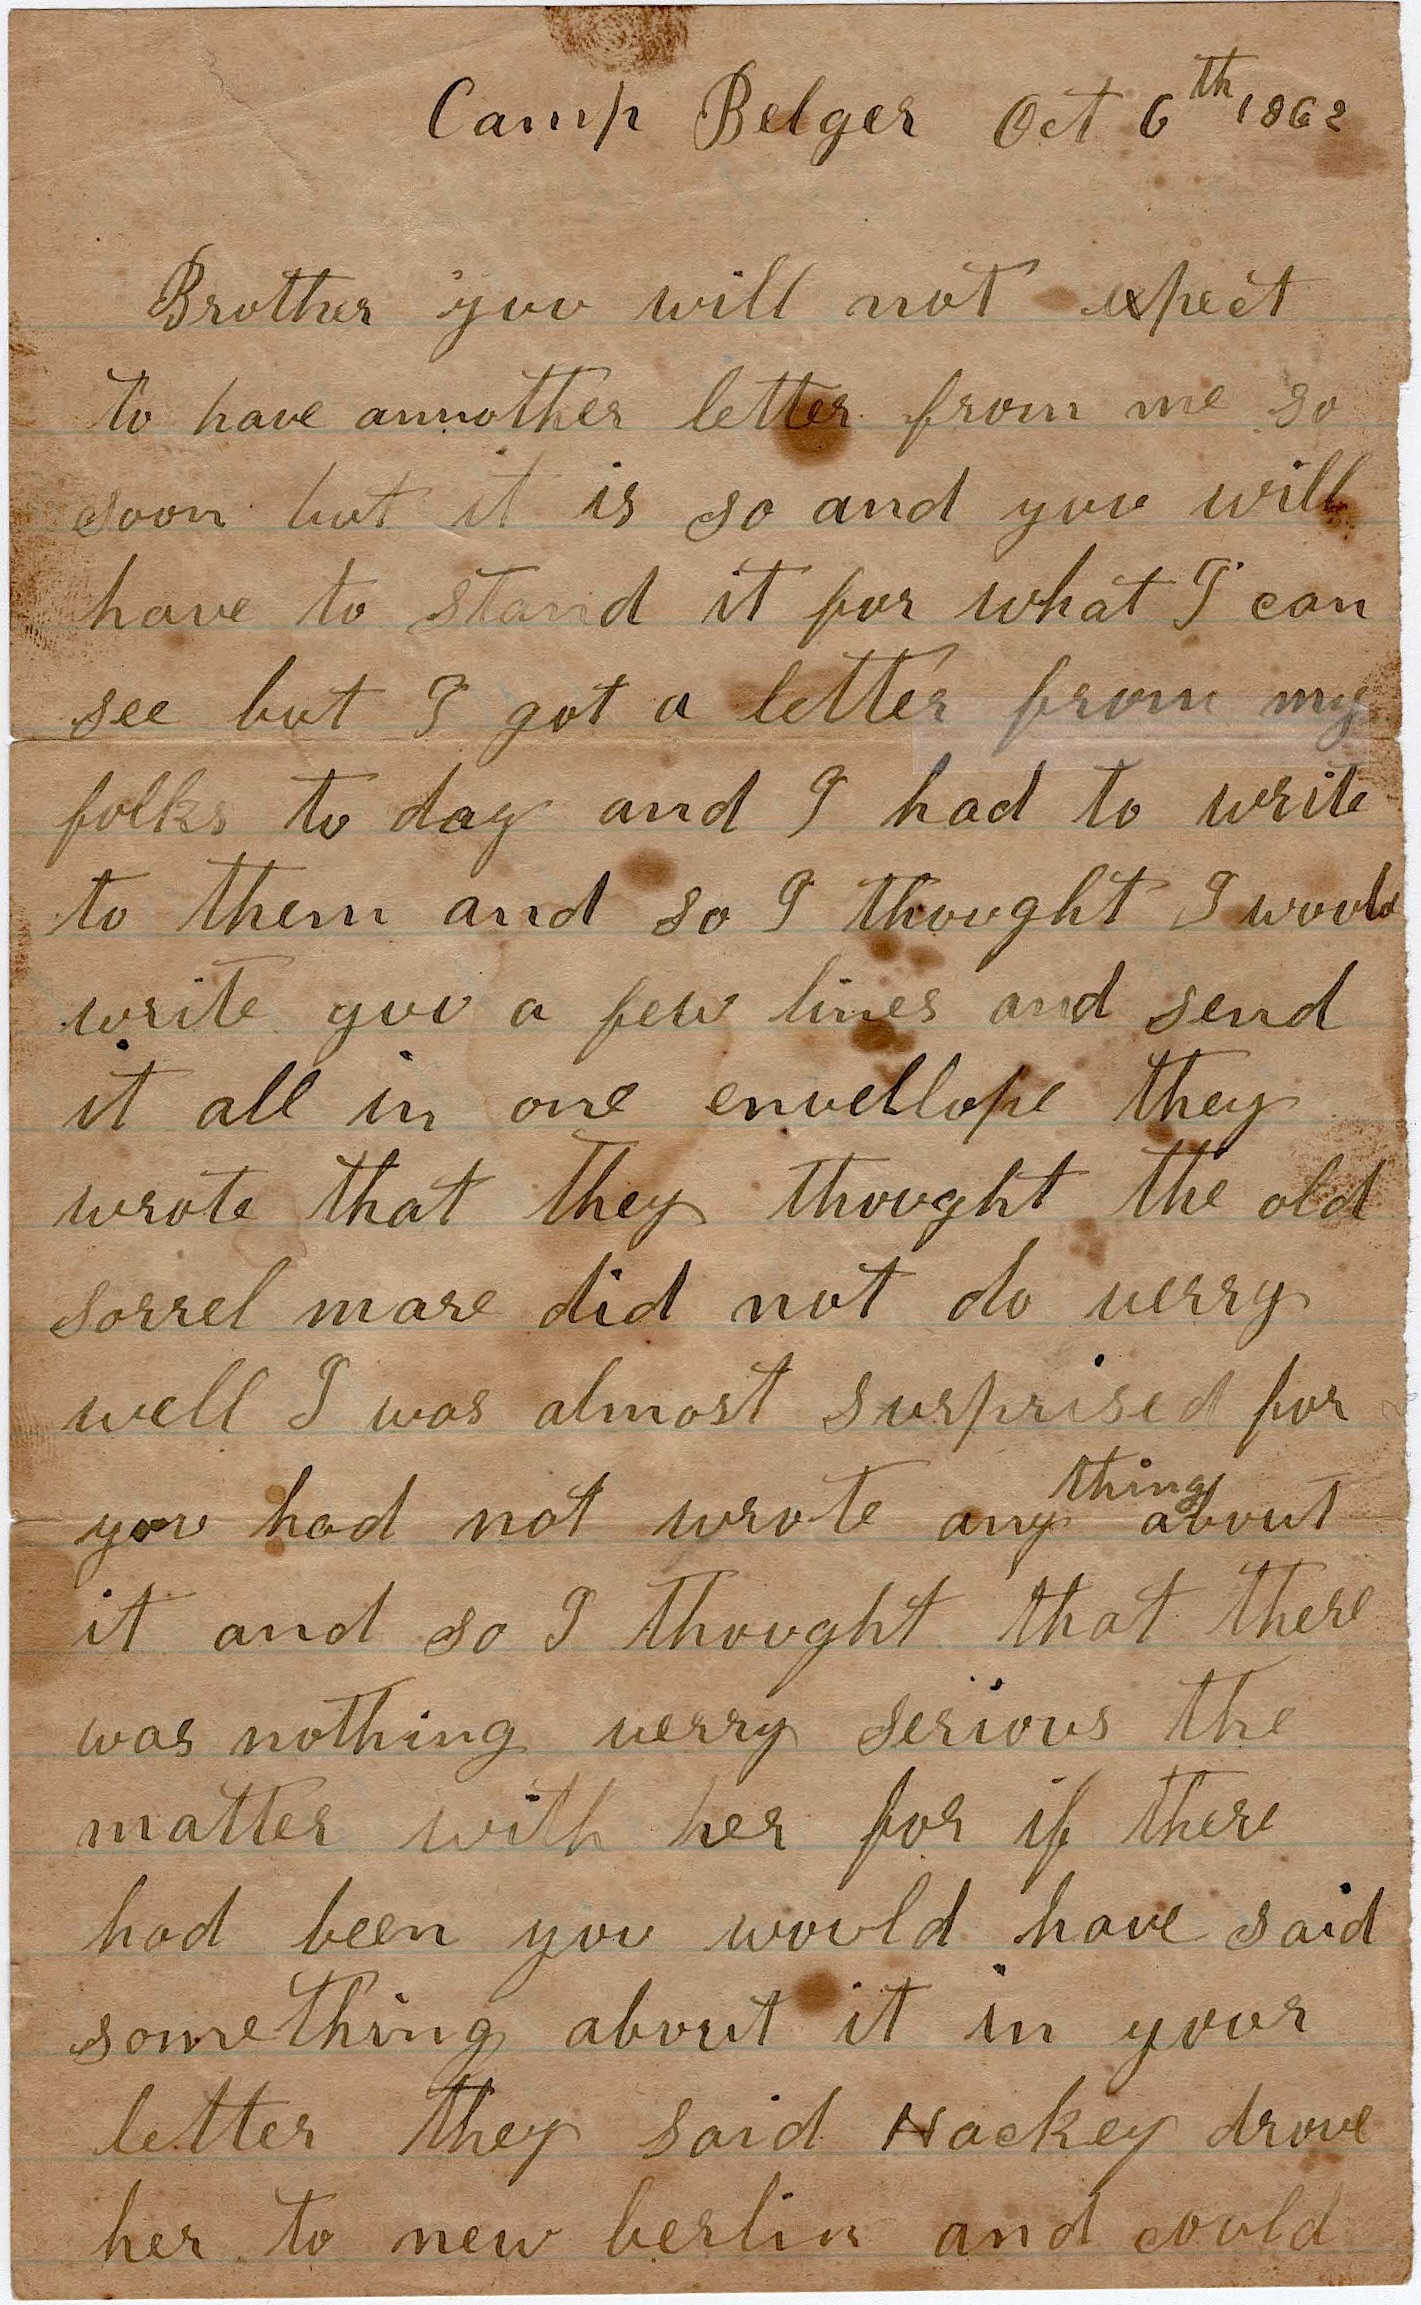 Camp Belger Oct 6th 1862
Brother you will not expect
to have annother letter from me so
soon but it is so and you will
have to stand it for what I can
see but I got a letter from my
folks to day and I had to write
to them and so I thought I would
write you a few lines and send
it all in one envellope they
wrote that they thought the old
sorrel mare did not do verry
well I was almost surprised for
you had not wrote any thing about
it and so I thought that there
was nothing verry serious the
matter with her for if there
had been you would have said
something about it in your
letter they said Hackey drove
her to new berlin and could